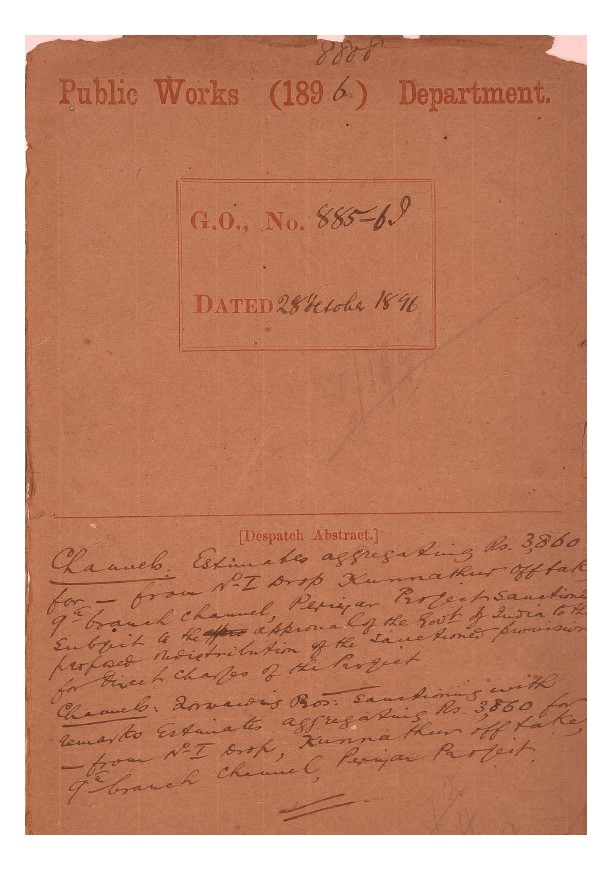 8808
Public Works (1896) Department.
G.O., No. 885-6 I
DATED 28 October 1896
[Despatch Abstract.]
Channels. Estimates aggregating Rs. 3,860
for — from No. I Drop Kunnathur off take
9th branch channel, Periyar Project Sanctioned
Subject to the approval of the Govt of India to the
proposed redistribution of the sanctioned provision
for Direct Charges of the Project
Channels: Forwarding Pros: Sanctioning with
remarks Estimates aggregating Rs. 3,860 for
— from No. I Drop, Kunnathur off take,
9th branch channel, Periyar Project.